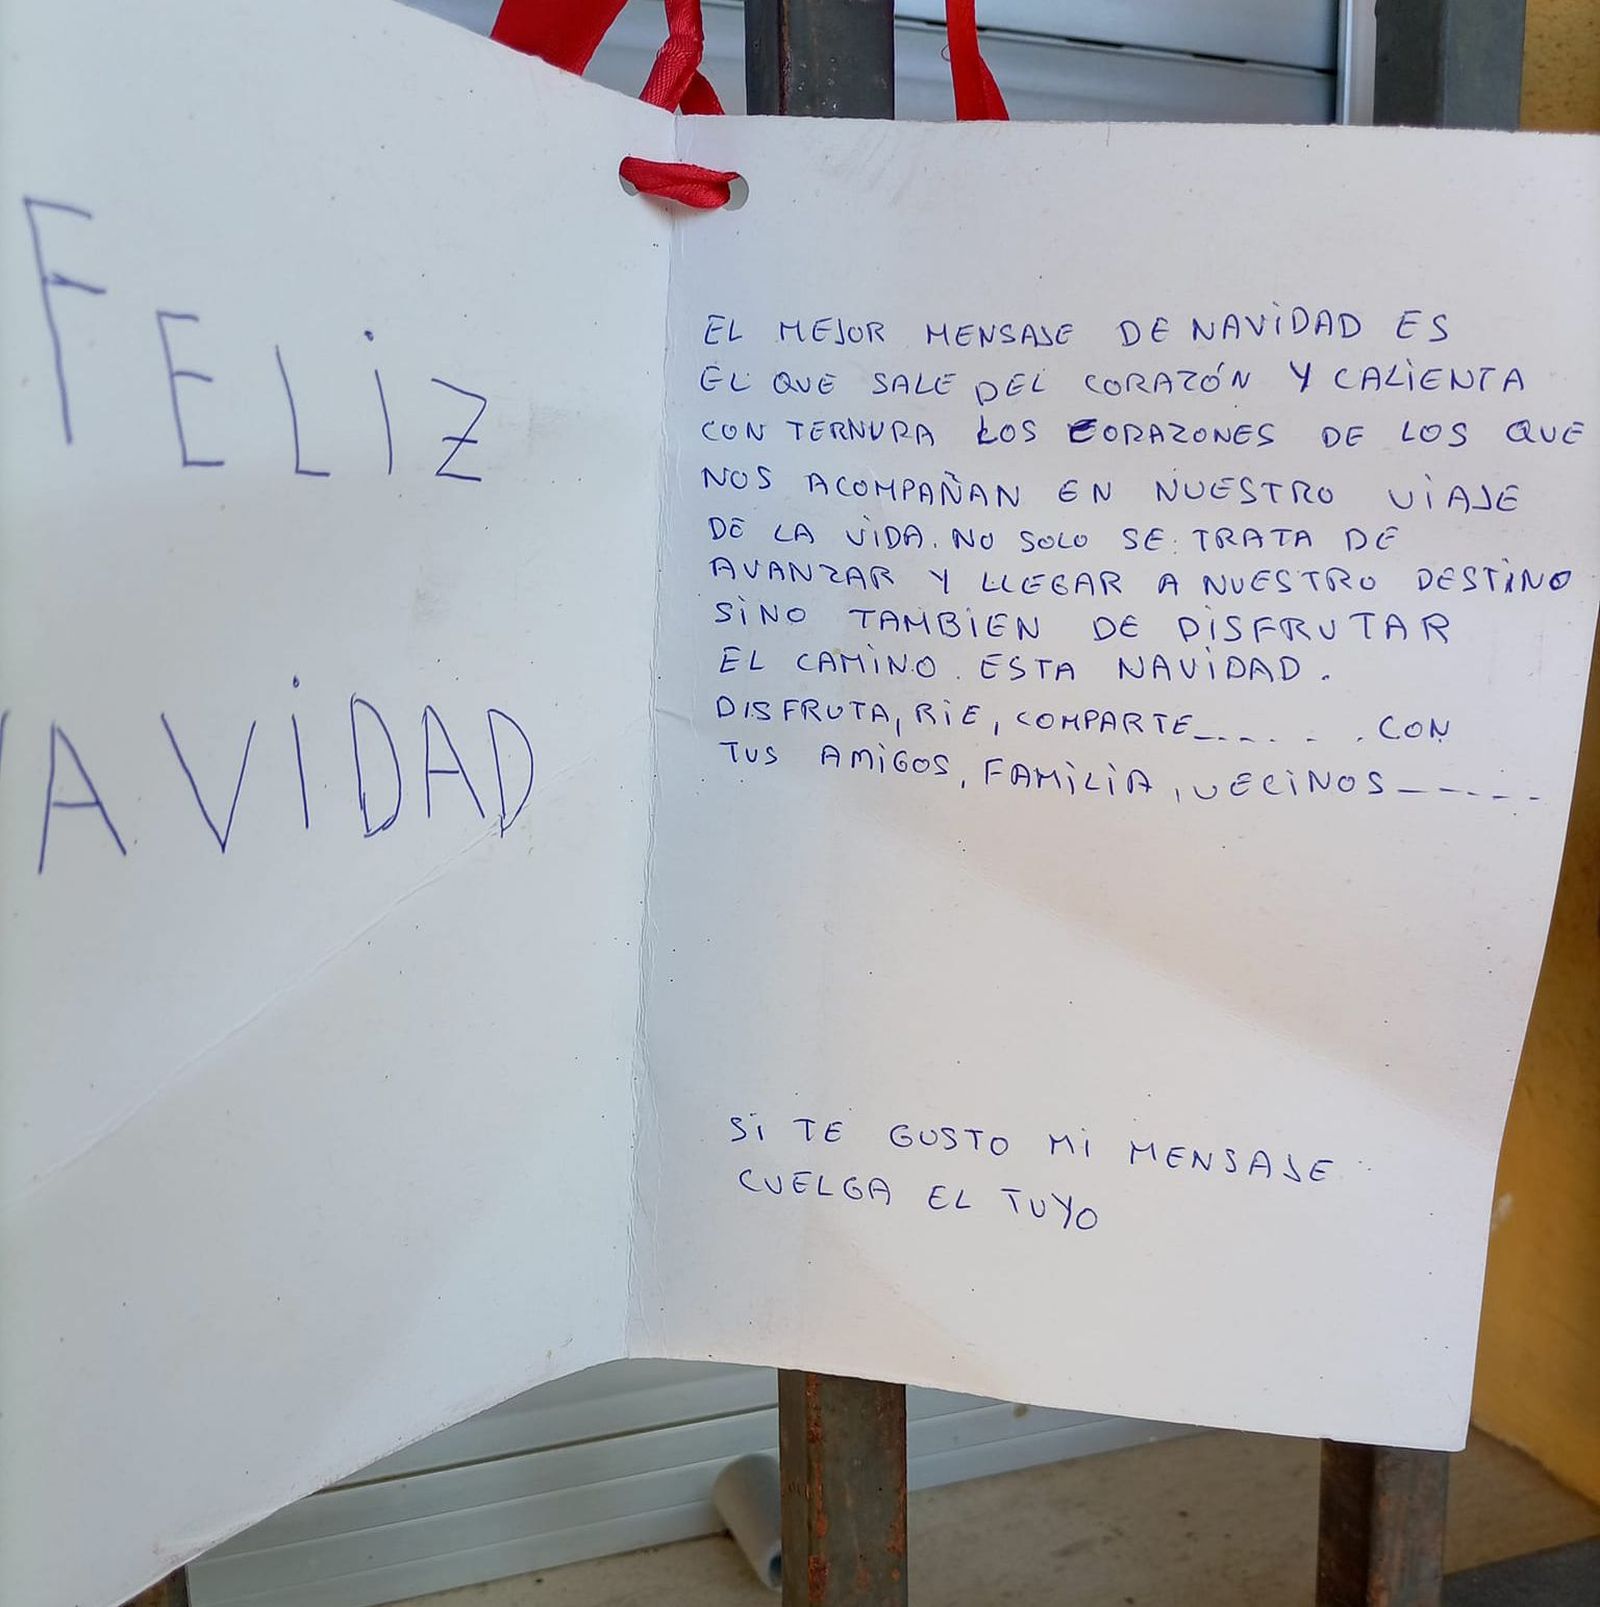 FELIZ
NAVIDAD
EL MEJOR MENSAJE DE NAVIDAD ES
EL QUE SALE DEL CORAZÓN Y CALIENTA
CON TERNURA LOS CORAZONES DE LOS QUE
NOS ACOMPAÑAN EN NUESTRO VIAJE
DE LA VIDA. NO SOLO SE TRATA DE
AVANZAR Y LLEGAR A NUESTRO DESTINO
SINO TAMBIEN DE DISFRUTAR
EL CAMINO. ESTA NAVIDAD.
DISFRUTA, RIE, COMPARTE_..... CON
TUS AMIGOS, FAMILIA, VECINOS-----
SI TE GUSTO MI MENSAJE
CUELGA EL TUYO